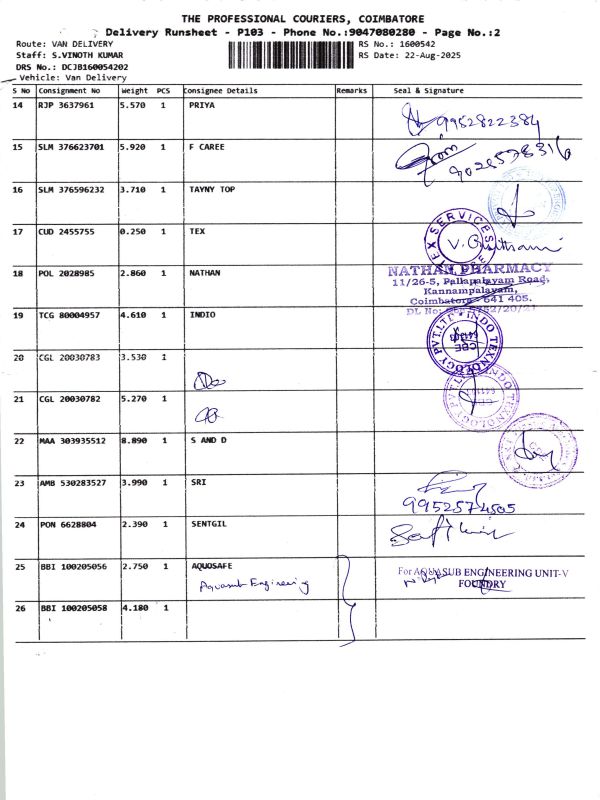 THE PROFESSIONAL COURIERS, COIMBATORE
Delivery Runsheet - P103 - Phone No.:9047080280 - Page No.:2
Route: VAN DELIVERY RS No.: 1600542
Staff: S.VINOTH KUMAR RS Date: 22-Aug-2025
DRS No.: DCJB160054202
Vehicle: Van Delivery
S No Consignment No Weight PCS Consignee Details Remarks Seal & Signature
14 RJP 3637961 5.570 1 PRIYA
9952822384
15 SLM 376623701 5.920 1 F CAREE
9028578316
16 SLM 376596232 3.710 1 TAYNY TOP
17 CUD 2455755 0.250 1 TEX
TEX SERVICES
18 POL 2028985 2.860 1 NATHAN
NATHAN PHARMACY
11/26-5, Pallapalayam Road,
Kannampalayam,
Coimbatore - 641 405.
19 TCG 80004957 4.610 1 INDIO
INDO TEXNOLOGY PVT.LTD
CBE
20 CGL 20030783 3.530 1
21 CGL 20030782 5.270 1
22 MAA 303935512 8.890 1 S AND D
23 AMB 530283527 3.990 1 SRI
9952574505
24 PON 6628804 2.390 1 SENTGIL
25 BBI 100205056 2.750 1 AQUOSAFE
Aquasub Engineering
For AQUASUB ENGINEERING UNIT-V
FOUNDRY
26 BBI 100205058 4.180 1